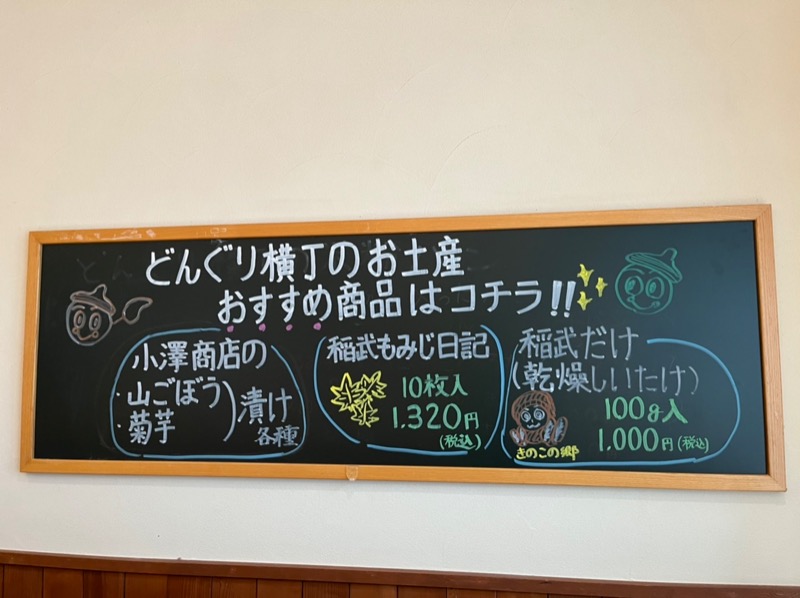 どんぐり横丁のお土産
おすすめ商品はコチラ!!
小澤商店の
・山ごぼう
・菊芋
)漬け
各種
稲武もみじ日記
10枚入
1,320円
(税込)
稲武だけ
(乾燥しいたけ)
100g入
1,000円(税込)
きのこの郷